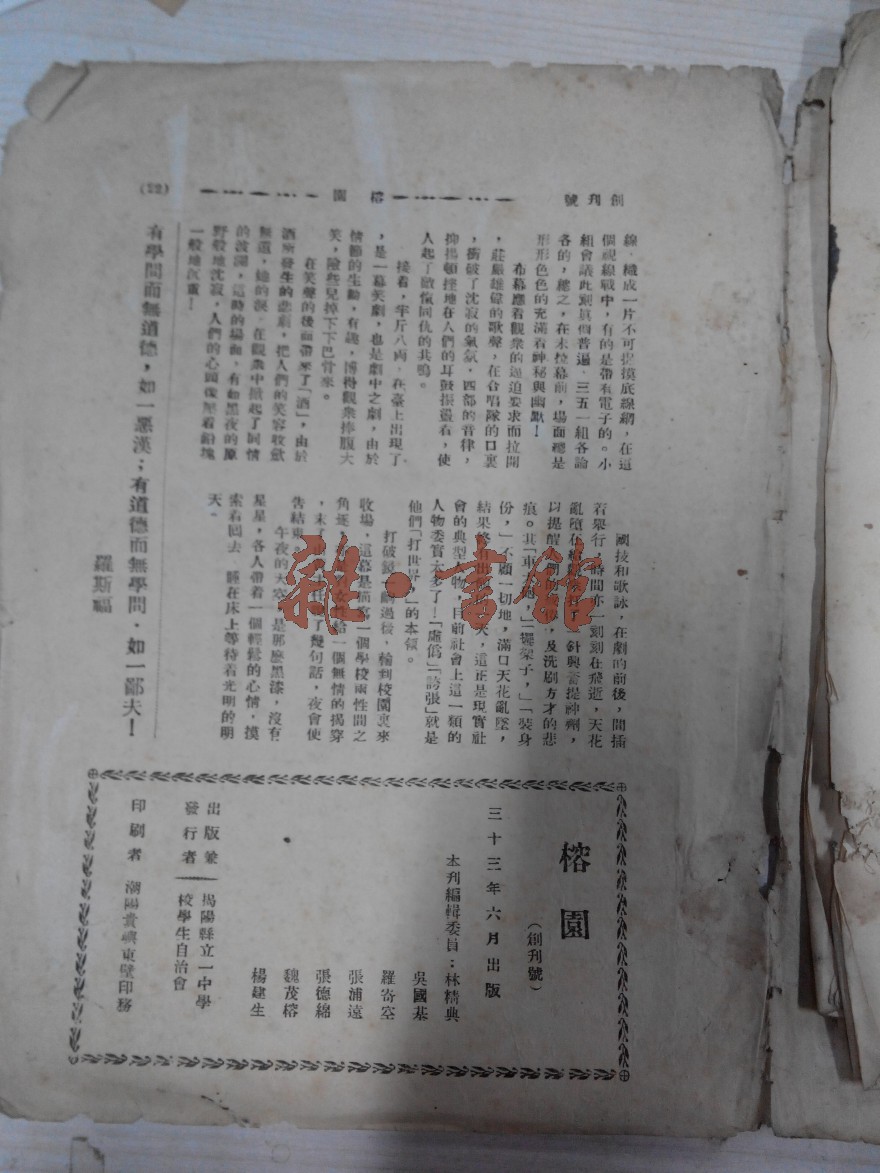 創刊號
榕園
(22)
線,織成一片不可捉摸底線網,在這
個視線戰中,有的是帶有電子的。小
組會議此刻眞個普遍,三五一組各論
各的,總之,在未拉幕前,場面總是
形形色色的充滿着神秘與幽默!
布幕應着觀衆的逼迫要求而拉開
,莊嚴雄偉的歌聲,在合唱隊的口裏
,衝破了沈寂的氣氛,四部的音律,
抑揚頓挫地在人們的耳鼓振盪着,使
人起了敵愾同仇的共鳴。
接着,半斤八兩,在臺上出現了
,是一幕笑劇,也是劇中之劇,由於
情節的生動,有趣,博得觀衆捧腹大
笑,險些兒掉下下巴骨來。
在笑聲的後面帶來了「酒」,由於
酒所發生的悲劇,把人們的笑容收歛
無遺,她的淚,在觀衆中掀起了同情
的波瀾,這時的場面,有如黑夜的原
野般地沈寂,人們的心頭像壓着鉛塊
一般地沉重!
國技和歌詠,在劇的前後,間插
若舉行,時間亦一刻刻在飛逝,天花
針興奮提神劑,
及洗刷方才的悲
痕。其「車
」「擺架子,」「裝身
份,」不顧一切地,滿口天花亂墜,
結果終
天,這正是現實社
會的典型人物,目前社會上這一類的
人物委實太多了!「虛僞」「誇張」就是
他們「打世界,」的本領。
打破鏡
過後,輪到校園裏來
收場,這幕是描寫一個學校兩性間之
角逐,
給一個無情的揭穿
,末了
了幾句話,夜會使
告結束。
午夜的天空
是那麽黑漆,沒有
星星,各人帶着一個輕鬆的心情,摸
索着回去,睡在床上等待着光明的明
天。
有學問而無道德,如一惡漢;有道德而無學問,如一鄙夫!
羅斯福
榕園
(創刊號)
三十三年六月出版
本刊編輯委員:林精典
吳國基
羅寄空
張浦遠
張德綿
魏茂榕
楊建生
出版兼
發行者
揭陽縣立一中學
校學生自治會
印刷者 潮陽貴嶼東壁印務
雜·書館